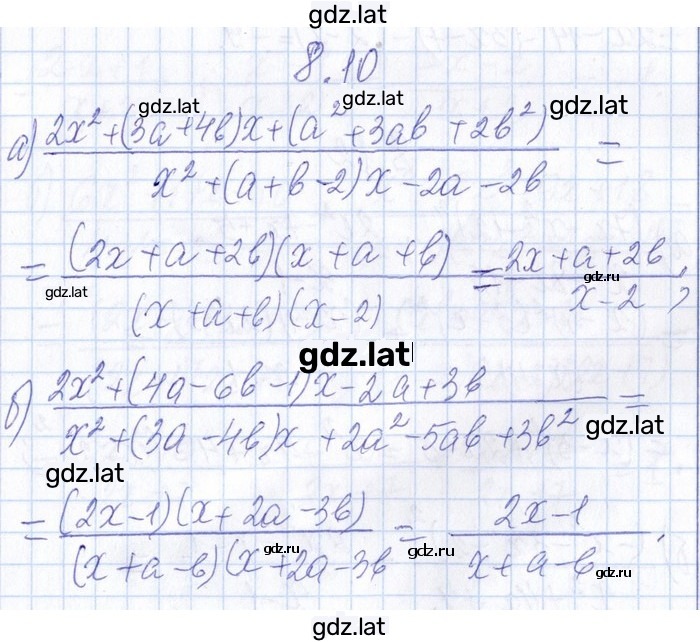 gdz.lat
8.10
gdz.lat gdz.lat gdz.lat
а) (2x² + (3a + 4b)x + (a² + 3ab + 2b²)) / (x² + (a + b - 2)x - 2a - 2b) =
= ((2x + a + 2b)(x + a + b)) / ((x + a + b)(x - 2)) = (2x + a + 2b) / (x - 2);
gdz.lat gdz.ru
gdz.lat
б) (2x² + (4a - 6b - 1)x - 2a + 3b) / (x² + (3a - 4b)x + 2a² - 5ab + 3b²) =
gdz.lat
gdz.lat
= ((2x - 1)(x + 2a - 3b)) / ((x + a - b)(x + 2a - 3b) = (2x - 1) / (x + a - b).
gdz.ru gdz.ru
gdz.lat